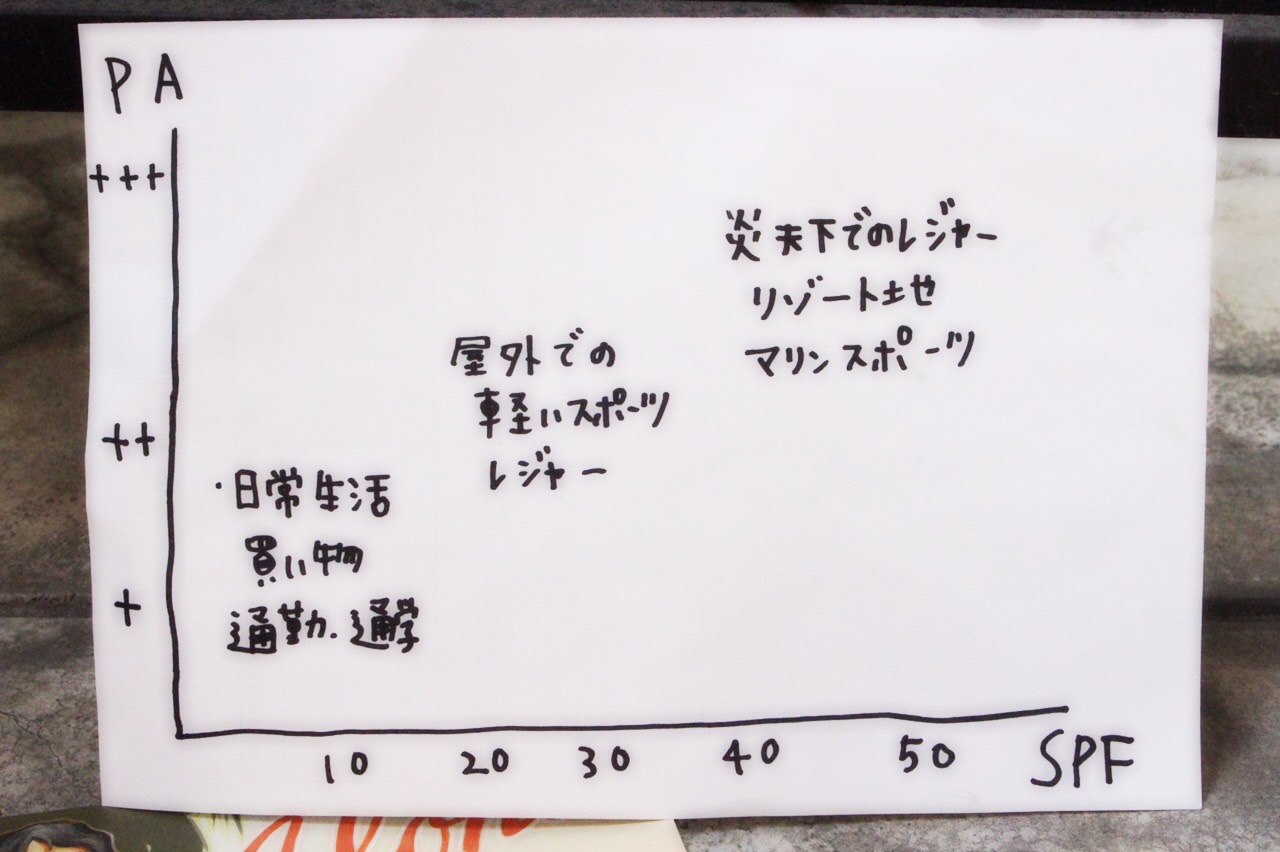 PA
+++
炎天下でのレジャー
リゾート地
マリンスポーツ
屋外での
軽いスポーツ
レジャー
++
・日常生活
買い物
通勤.通学
+
10 20 30 40 50 SPF